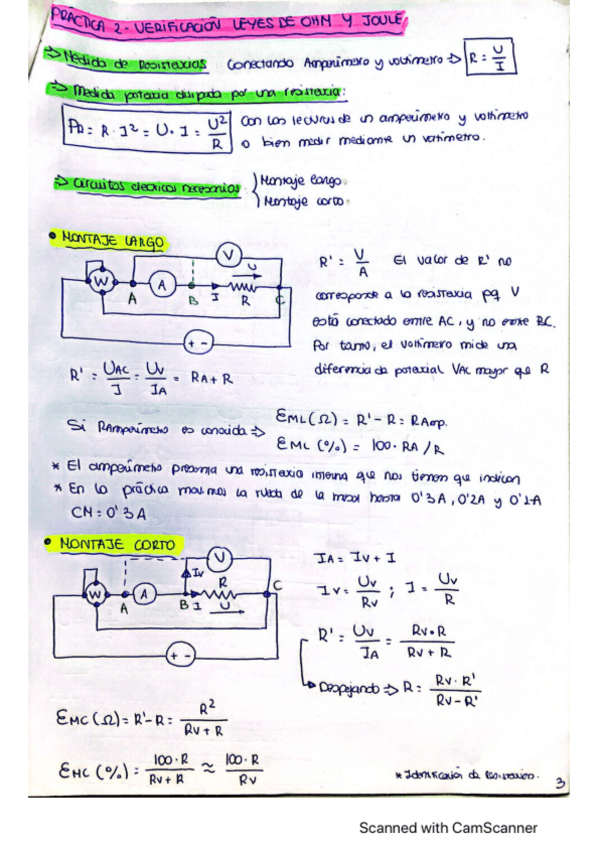 PRÁCTICA 2 - VERIFICACIÓN LEYES DE OHM Y JOULE
=> Medida de Resistencias Conectando Amperímetro y voltímetro => R = U/I
=> Medida potencia disipada por una resistencia:
PD = R · I² = U · I = U²/R con las lecturas de un amperímetro y voltímetro
o bien medir mediante un vatímetro.
=> Circuitos eléctricos necesarios { Montaje largo.
Montaje corto.
• MONTAJE LARGO
V
U
W A
A B I R C
+ -
R' = V/A El valor de R' no
corresponde a la resistencia pq V
está conectado entre AC, y no entre BC.
Por tanto, el voltímetro mide una
diferencia de potencial VAC mayor que R
R' = UAC/I = UV/IA = RA + R
Si RAmperímetro es conocida => EML(Ω) = R' - R = RAmp.
EML (%) = 100 · RA / R
* El amperímetro presenta una resistencia interna que nos tienen que indicar
* En la práctica movemos la rueda de la mesa hasta 0'3A, 0'2A y 0'1A
CN = 0'3A
• MONTAJE CORTO
V
IV R
W A C
A B I U
+ -
IA = IV + I
IV = UV/RV ; I = UV/R
R' = UV/IA = RV·R/RV + R
Despejando => R = RV · R'/RV - R'
EMC(Ω) = R' - R = R²/RV + R
EMC (%) = 100 · R/RV + R ≈ 100 · R/RV
* Identificación de Resistencias.
3
Scanned with CamScanner